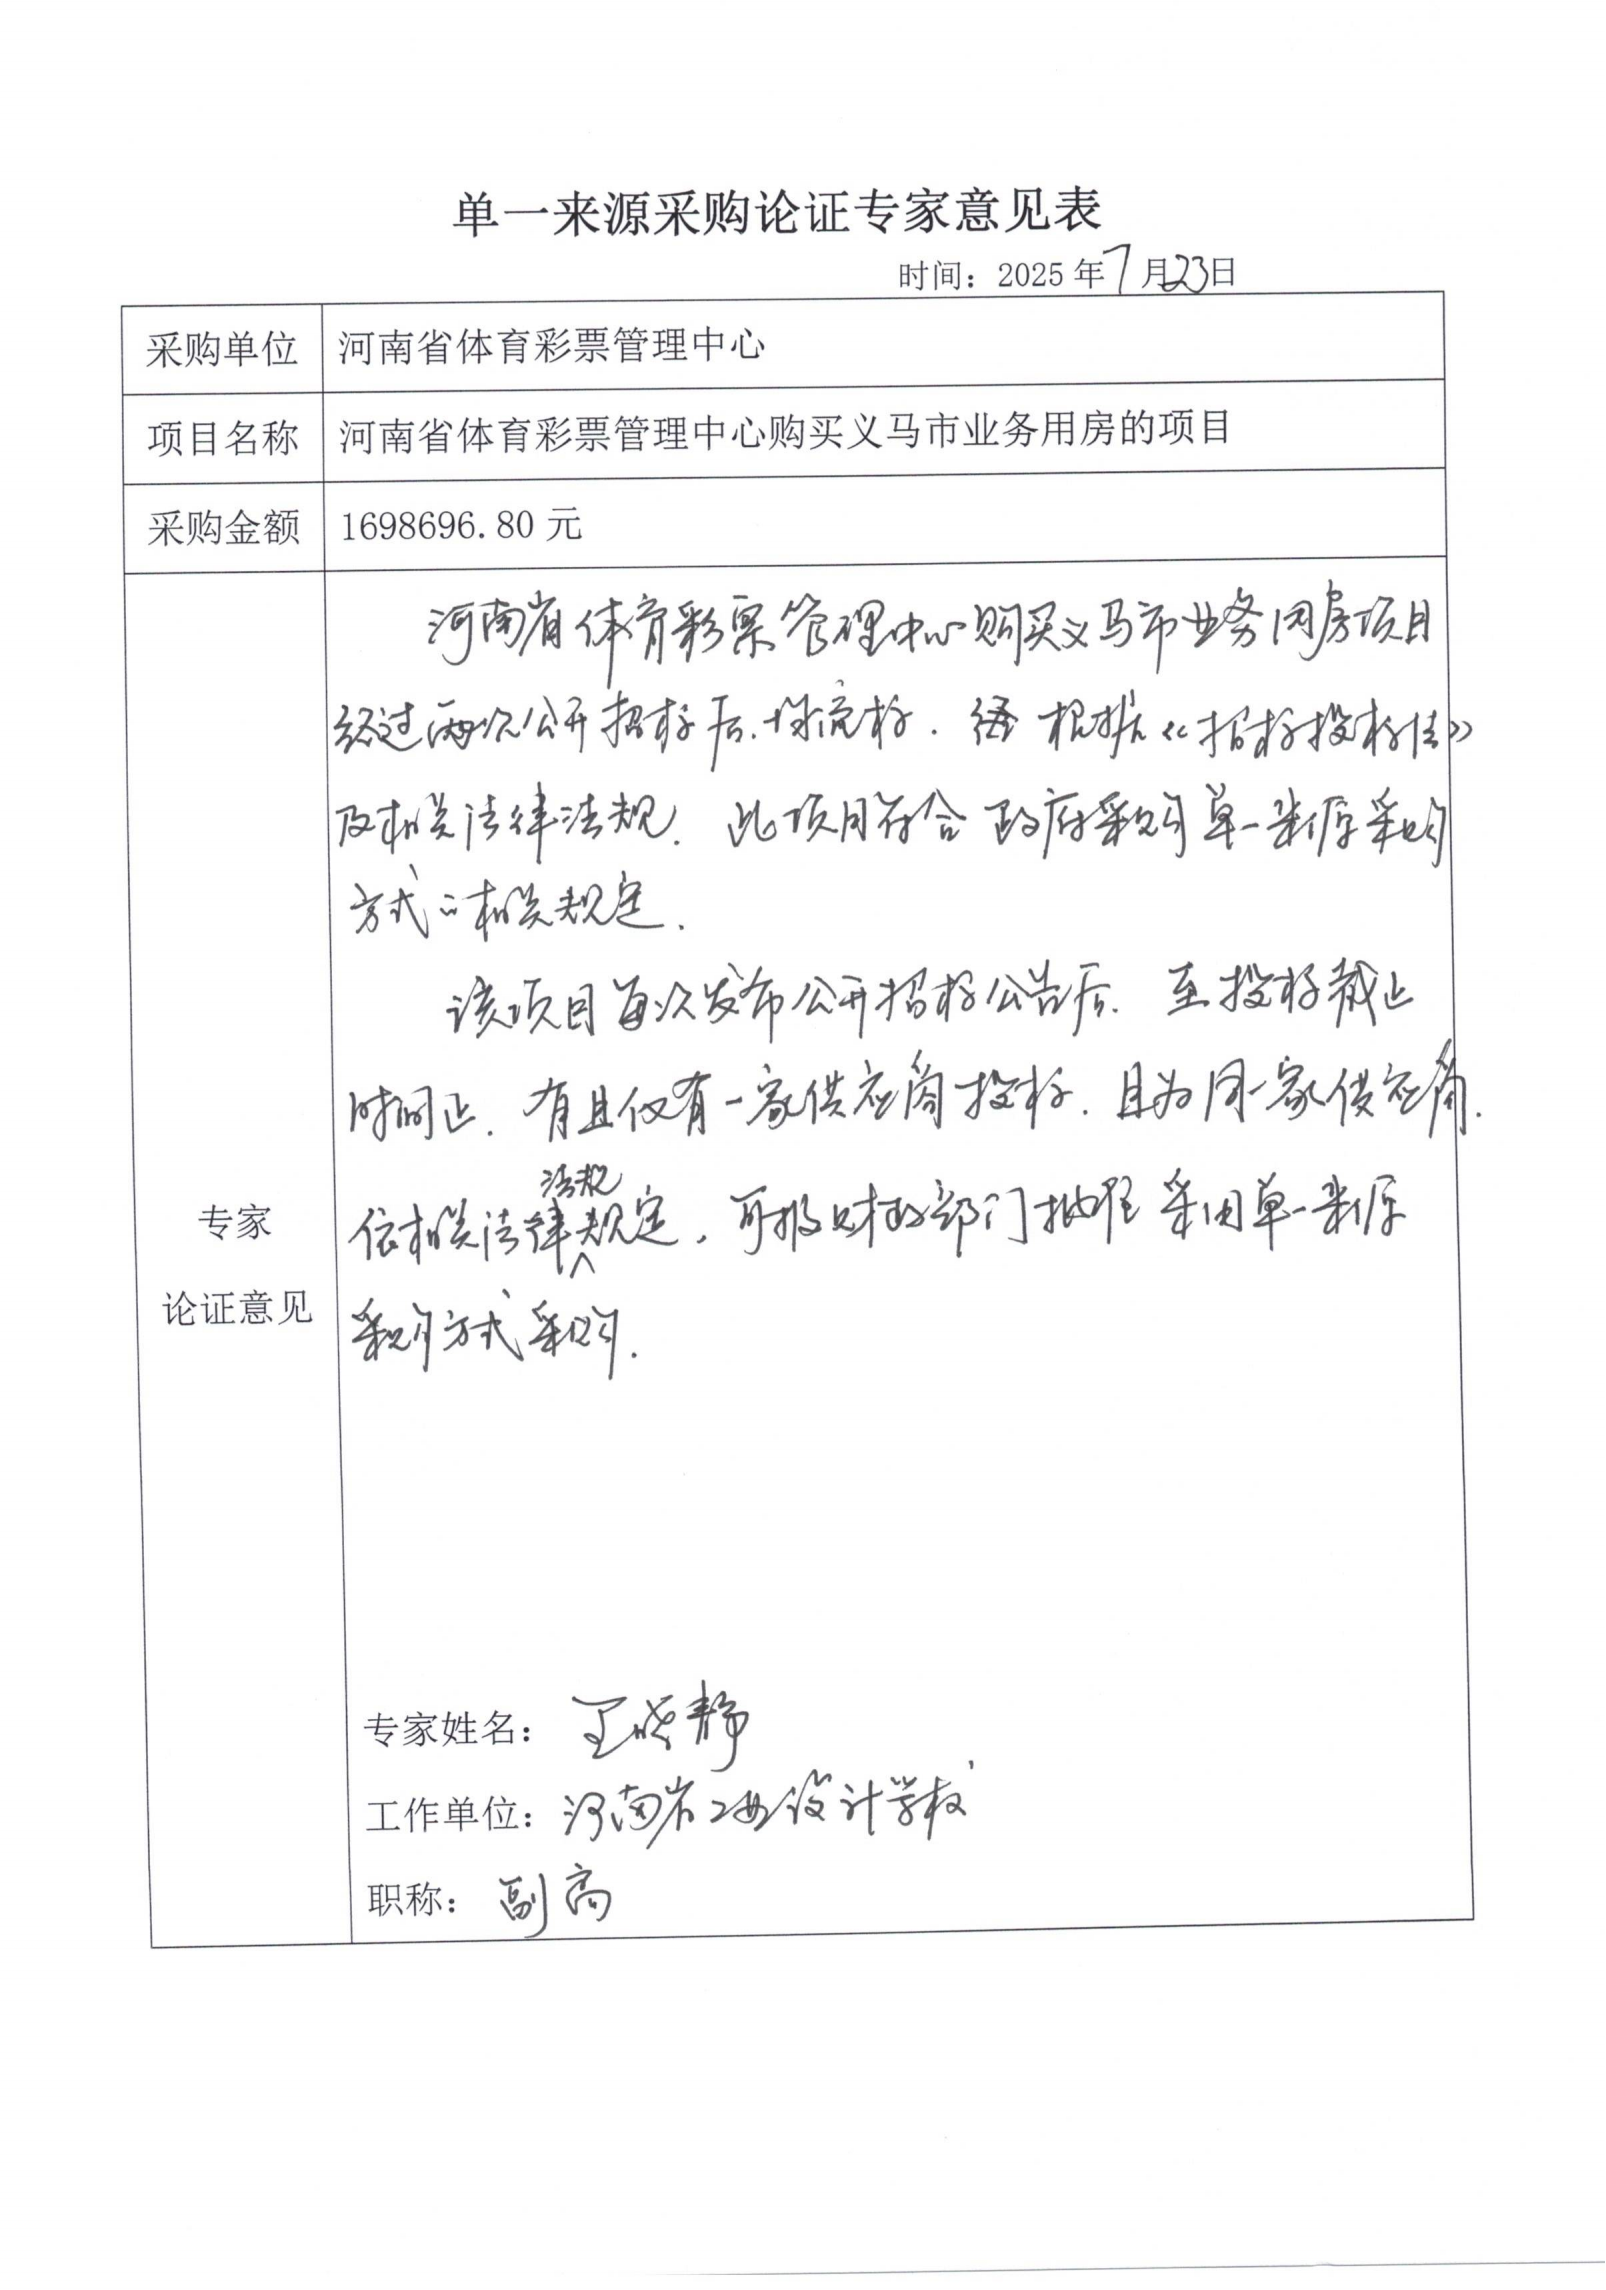 单一来源采购论证专家意见表
时间：2025年7月23日
采购单位 河南省体育彩票管理中心
项目名称 河南省体育彩票管理中心购买义马市业务用房的项目
采购金额 1698696.80元
河南省体育彩票管理中心购买义马市业务用房项目
经过两次公开招标后，均流标. 根据《招标投标法》
及相关法律法规. 此项目符合政府采购单一来源采购
方式的相关规定.
该项目每次发布公开招标公告后. 至投标截止
时间止. 有且仅有一家供应商投标. 且为同一家供应商.
依相关法律法规规定，可报财政部门批准采用单一来源
采购方式采购.
专家
论证意见
专家姓名：王晓静
工作单位：河南省工业设计学校
职称：副高